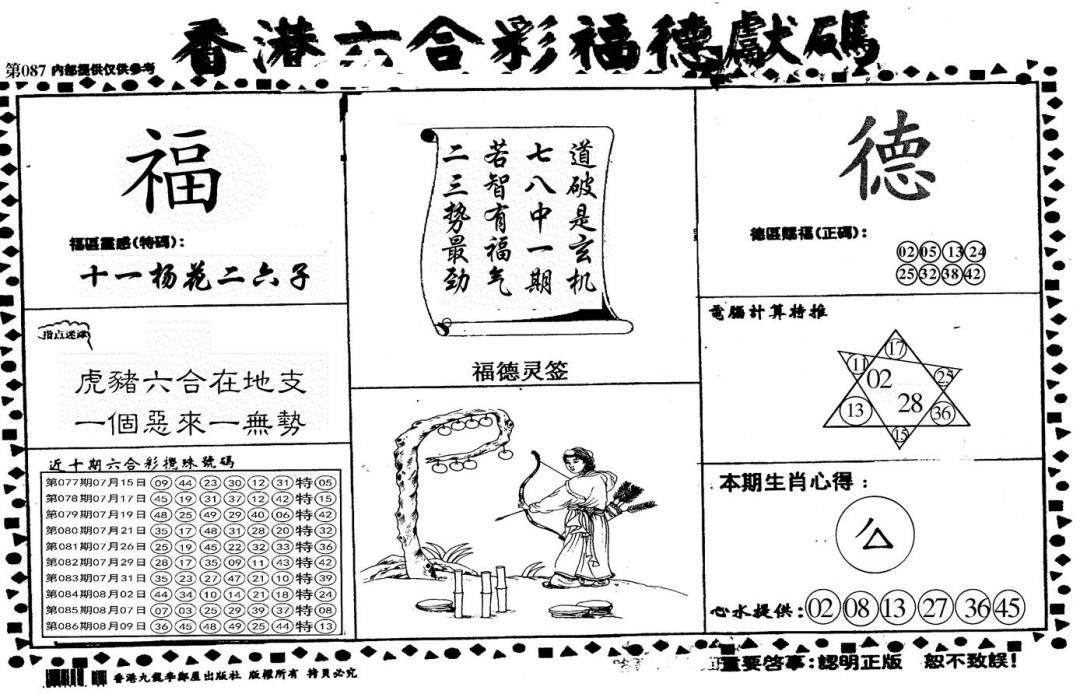 香港六合彩福德獻碼
第087 内部提供仅供参考
福
福區靈感(特碼):
十一杨花二六子
指点迷津
虎豬六合在地支
一個惡來一無勢
近十期六合彩攪珠號碼
第077期07月15日 09 44 23 30 12 31 特 05
第078期07月17日 45 19 31 37 12 42 特 15
第079期07月19日 48 25 49 29 40 06 特 42
第080期07月21日 35 17 48 31 28 20 特 32
第081期07月26日 25 19 45 22 32 33 特 36
第082期07月29日 28 17 35 09 11 43 特 42
第083期07月31日 35 23 27 47 21 10 特 39
第084期08月02日 44 34 10 14 21 18 特 24
第085期08月07日 07 03 25 29 39 37 特 08
第086期08月09日 36 45 48 49 25 44 特 13
道破是玄机
七八中一期
若智有福气
二三勢最劲
福德灵签
德
德區賜福(正碼):
02 05 13 24
25 32 38 42
電腦計算特推
17
11 02 25
13 28 36
15
本期生肖心得:
心水提供: 02 08 13 27 36 45
香港九龍李鄭屋出版社 版權所有 拷貝必究
重要啓事:認明正版 恕不致誤!